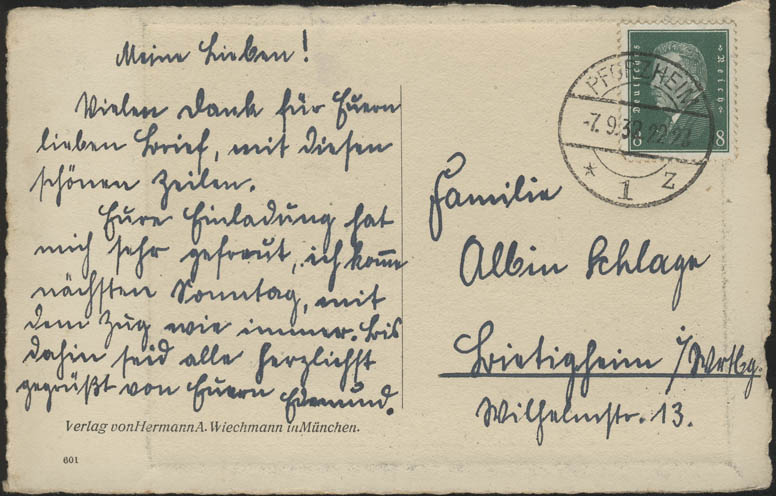 Meine Lieben!
Vielen Dank für Euern
lieben Brief, mit diesen
schönen Zeilen.
Eure Einladung hat
mich sehr gefreut, ich komme
nächsten Sonntag, mit
dem Zug wie immer. Bis
dahin seid alle herzlichst
gegrüßt von Euern Edmund.
Verlag von Hermann A. Wiechmann in München.
601
Deutsches Reich
8 8
PFORZHEIM
-7.9.30.22-23
* 1 z
Familie
Albin Schlage
Bietigheim i/Wrtbg.
Wilhelmstr. 13.